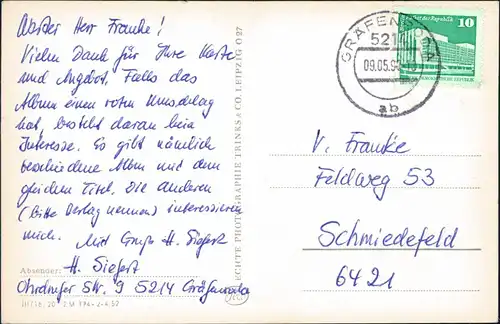 Werter Herr Francke!
Vielen Dank für Ihre Karte
und Angebot. Falls das
Album einen roten Umschlag
hat, besteht daran kein
Interesse. Es gibt nämlich
verschiedene Alben mit dem
gleichen Titel. Die anderen
(bitte Verlag nennen) interessieren
mich. Mit Gruß H. Siefert
Absender:
H. Siefert
Ohrdrufer Str. 9 5214 Gräfenroda
ECHTE PHOTOGRAPHIE TRINKS & CO. LEIPZIG O 27
GRÄFENRODA
521
09.05.9
ab
Palast der Republik
10
V. Francke
Feldweg 53
Schmiedefeld
6421